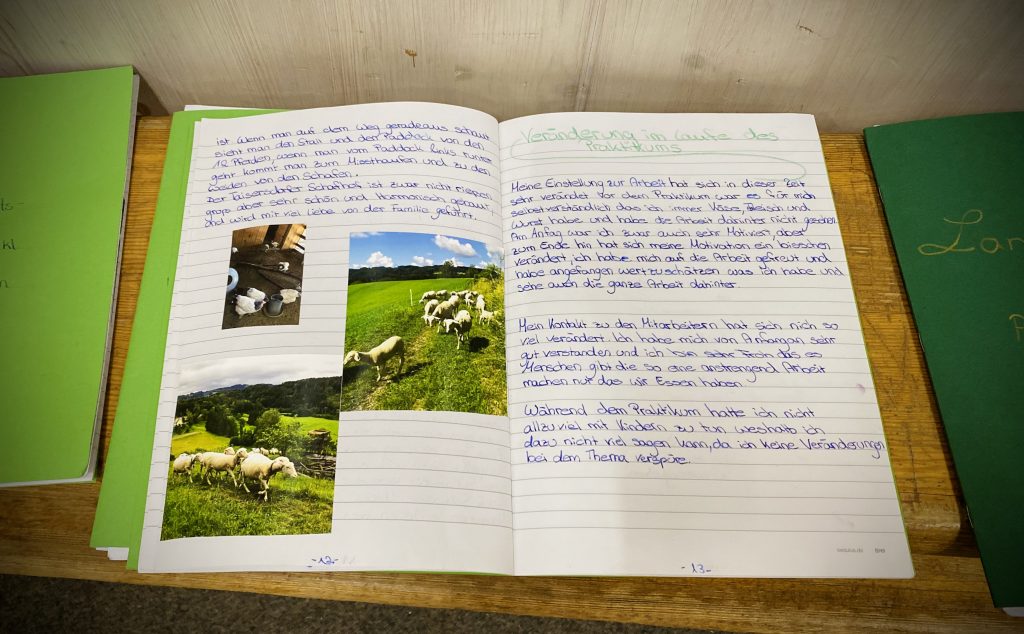 ist. Wenn man auf dem Weg geradeaus schaut
sieht man den Stall und den Paddock von den
12 Pferden, wenn man vom Paddock links runter
geht kommt man zum Misthaufen und zu den
Weiden von den Schafen.
Der Taisersdorfer Schafhof ist zwar nicht riesen
groß aber sehr schön und Harmonisch gebaut
und wird mit viel Liebe von der Familie geführt.
-12-
Veränderung im Laufe des
Praktikums
Meine Einstellung zur Arbeit hat sich in dieser Zeit
sehr verändet. Vor dem Praktikum war es für mich
selbstverständlich das ich immer Käse, Fleisch und
Wurst habe und habe die Arbeit dahinter nicht gesehen.
Am Anfag war ich zwar auch sehr Motiviert, aber
zum Ende hin hat sich meine Motivation ein bisschen
verändert, ich habe mich auf die Arbeit gefreut und
habe angefangen wertzuschätzen was ich habe und
sehe auch die ganze Arbeit dahinter.
Mein Kontakt zu den Mitarbeitern hat sich nich so
viel verändert. Ich habe mich von Anfangan sehr
gut verstanden und ich bin sehr Froh das es
Menschen gibt die so eine anstrengend Arbeit
machen nur das wir Essen haben.
Während dem Praktikum hatte ich nicht
allzuviel mit Kindern zu tun weshalb ich
dazu nicht viel sagen kann, da ich keine Veränderungen
bei dem Thema verspüre.
-13-